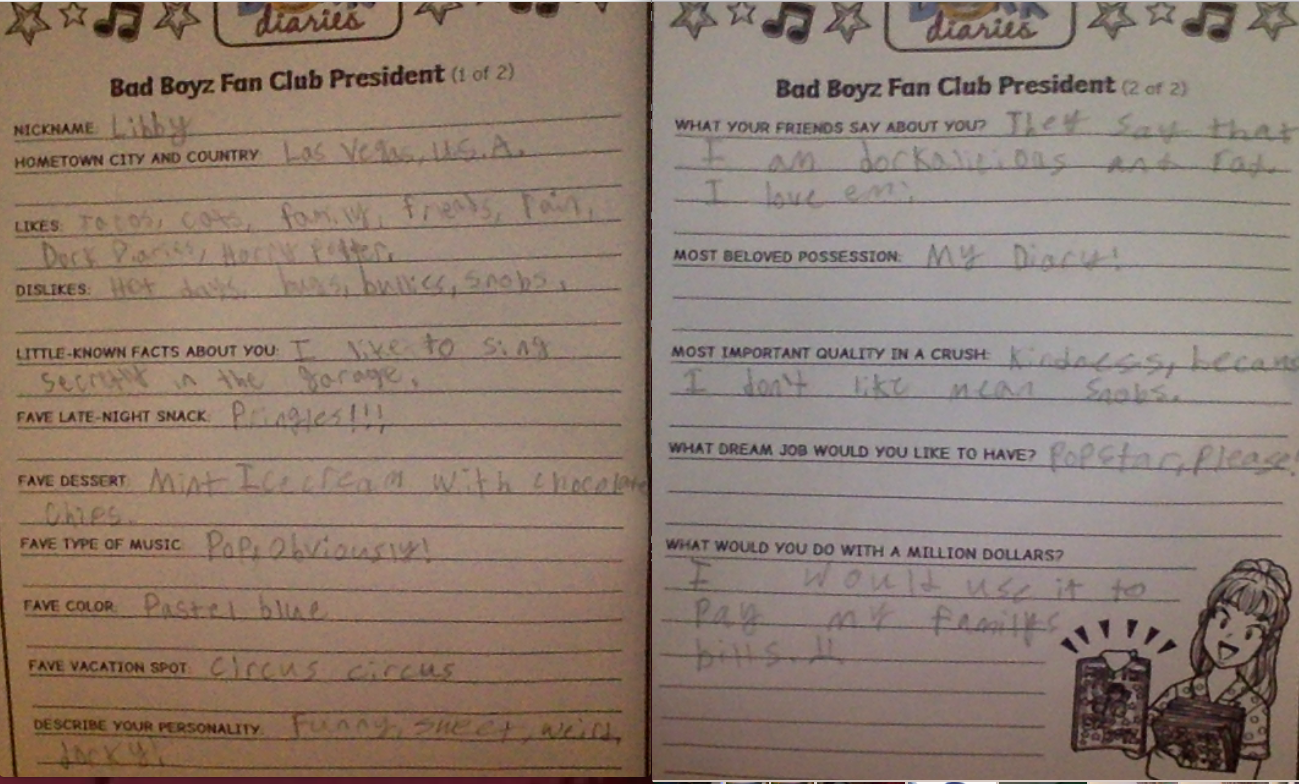 DORK
diaries
Bad Boyz Fan Club President (1 of 2)
NICKNAME: Libby
HOMETOWN CITY AND COUNTRY: Las Vegas, U.S.A.
LIKES: Tacos, cats, family, friends,
Dork Diaries, Harry Potter.
DISLIKES: Hot days, bugs, bullies, snobs.
LITTLE-KNOWN FACTS ABOUT YOU: I like to sing
in the garage.
FAVE LATE-NIGHT SNACK: Pringles!!!
FAVE DESSERT: Mint Icecream with chocolate
chips.
FAVE TYPE OF MUSIC: Pop, Obviously!
FAVE COLOR: Pastel blue
FAVE VACATION SPOT: circus circus
DESCRIBE YOUR PERSONALITY: Funny, sweet, weird,
dorky!
DORK
diaries
Bad Boyz Fan Club President (2 of 2)
WHAT YOUR FRIENDS SAY ABOUT YOU? They say that
I am dorkalicious and rad.
I love em!
MOST BELOVED POSSESSION: My Diary!
MOST IMPORTANT QUALITY IN A CRUSH: Kindness, becaus
I don't like mean snobs.
WHAT DREAM JOB WOULD YOU LIKE TO HAVE? Popstar, Please!
WHAT WOULD YOU DO WITH A MILLION DOLLARS?
I would use it to
Pay my familys
bills.!!